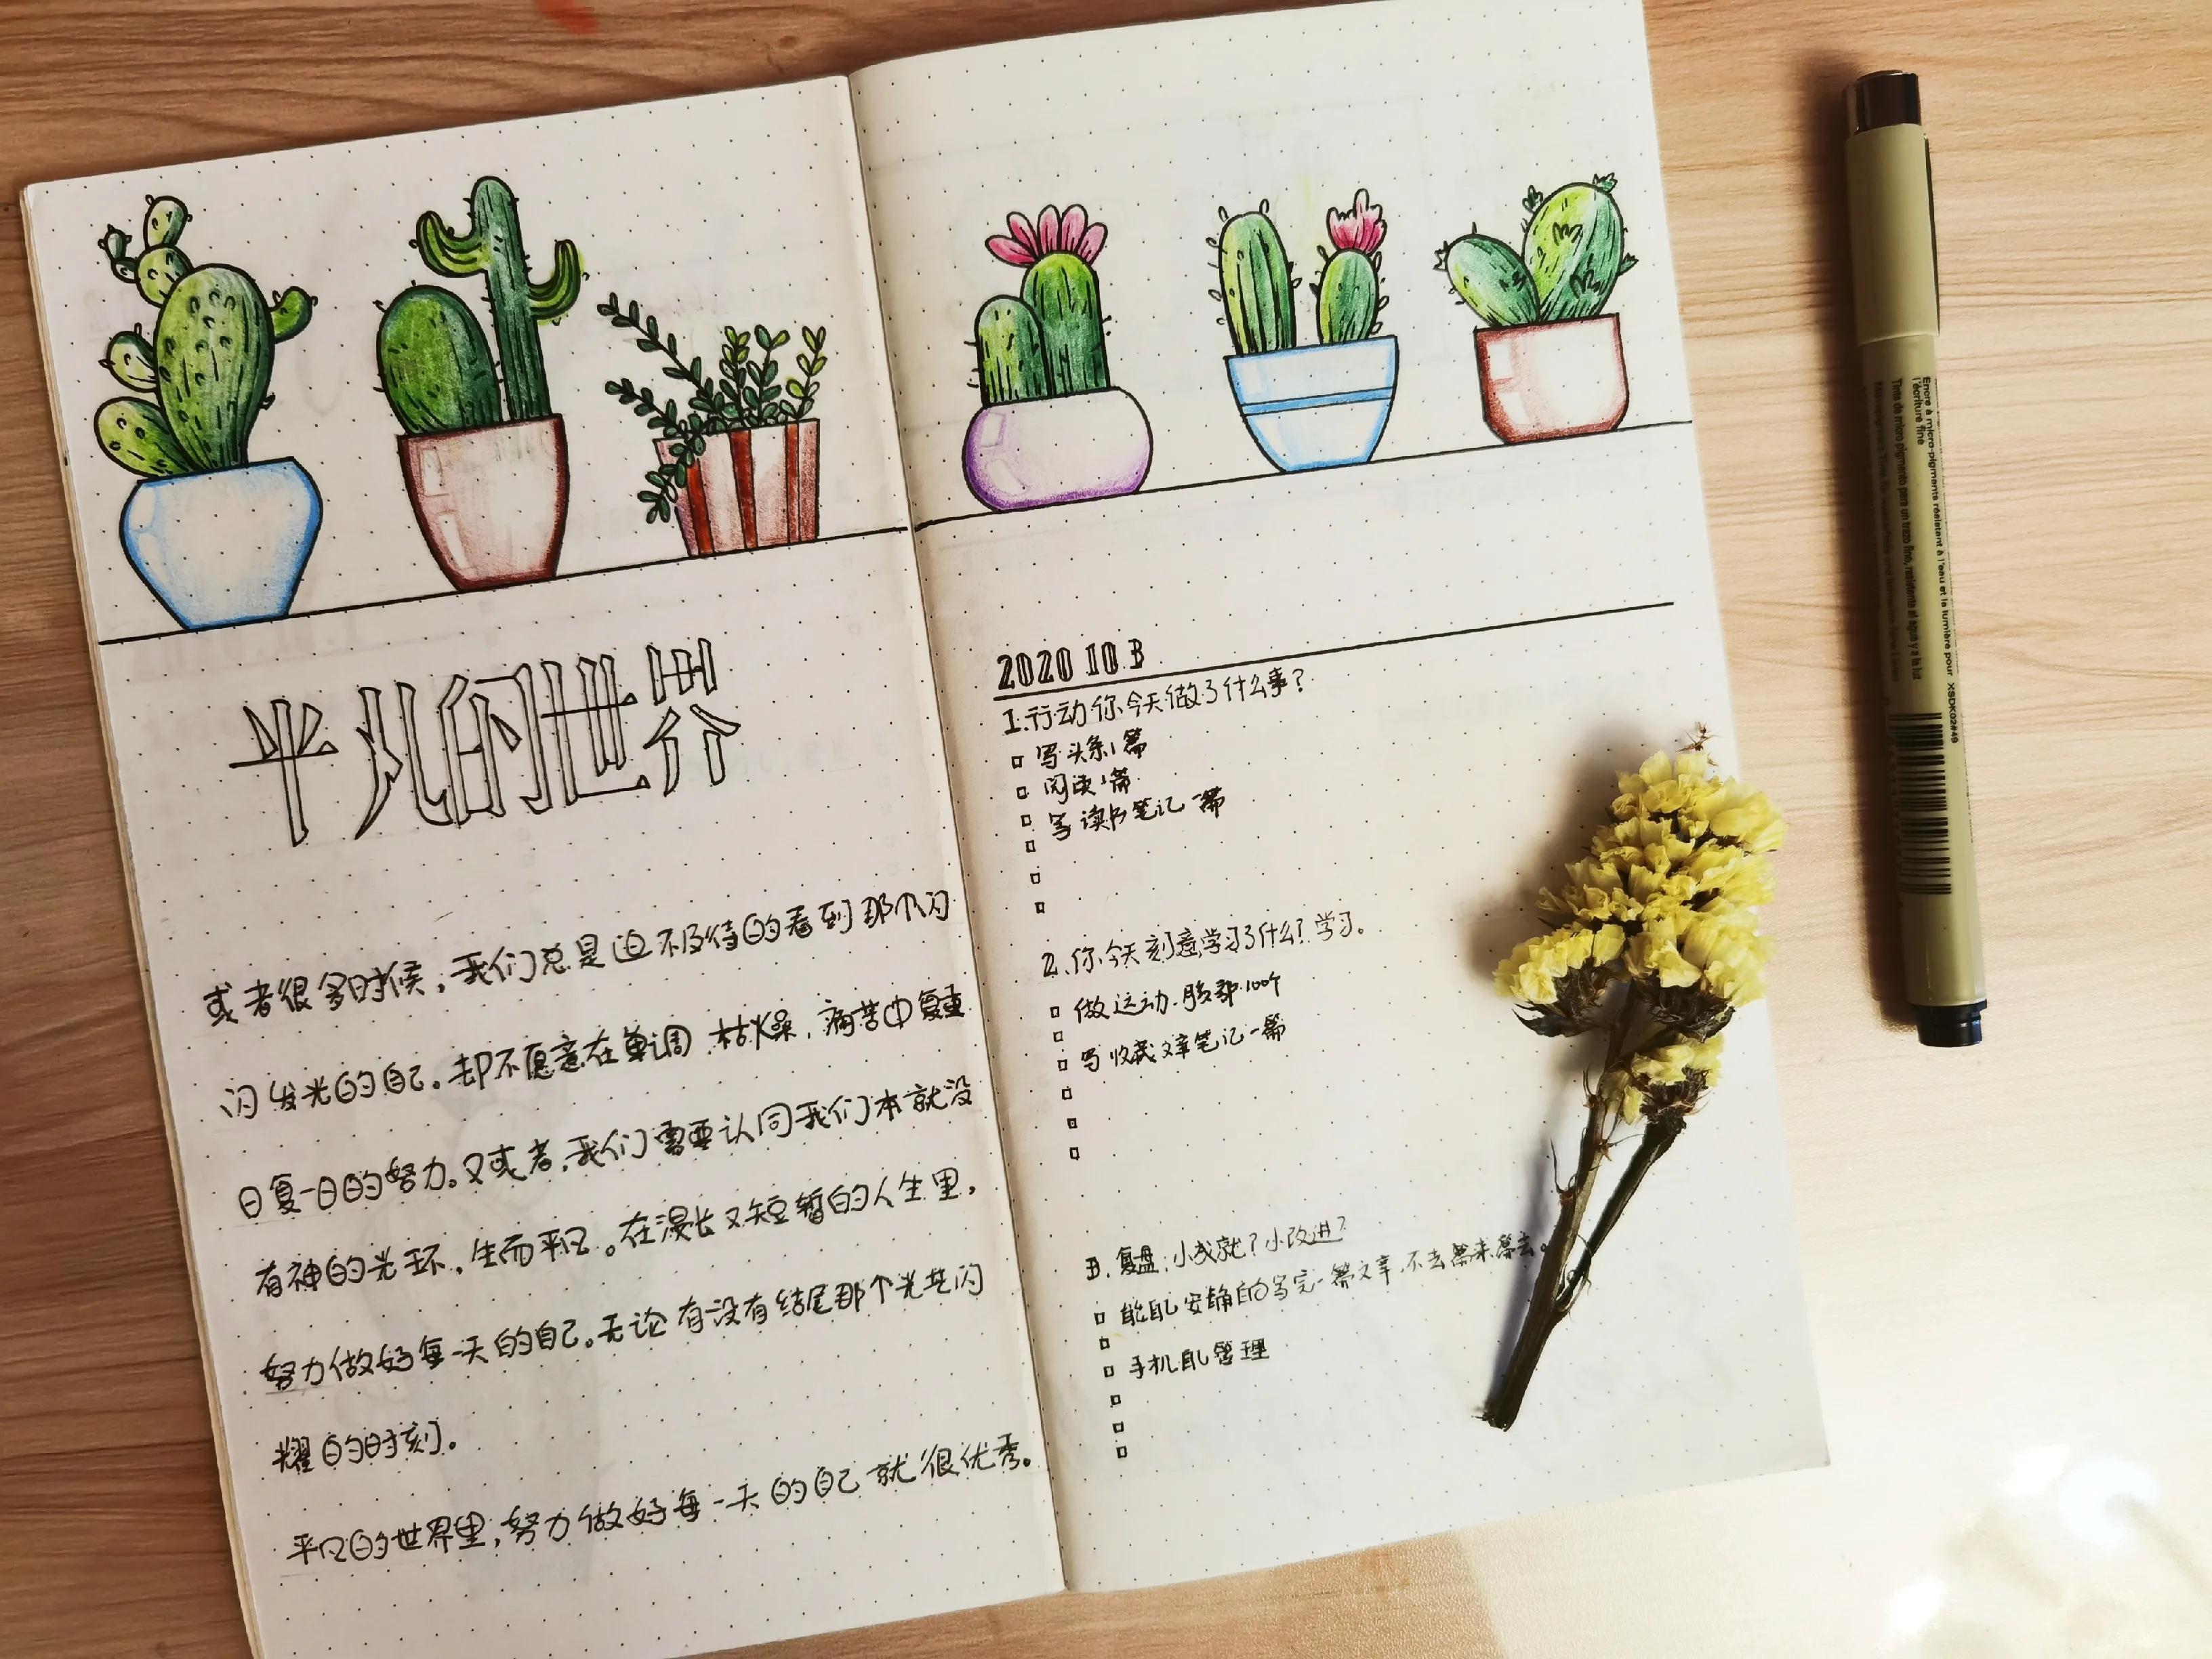 平凡的世界
或者很多时候，我们总是迫不及待的看到那个闪
闪发光的自己。却不愿意在单调、枯燥、痛苦中复重
日复一日的努力。又或者，我们需要认同我们本就没
有神的光环，生而平凡。在漫长又短暂的人生里，
努力做好每一天的自己。无论有没有结尾那个光芒闪
耀的时刻。
平凡的世界里，努力做好每一天的自己就很优秀。
2020 10 3
1.行动你今天做了什么事？
写头条1篇
阅读1篇
写读书笔记一篇
2.你今天刻意学习了什么？学习。
做运动.腹部100个
写收藏文章笔记一篇
3.复盘：小成就？小改进？
能安静的写完一篇文章，不去
手机管理
Encre à micro-pigments résistant à l'eau et la lumière pour
l'écriture fine
Tinta de micro pigmento para un trazo fino, resistente al agua y a la luz
XSDK02#49